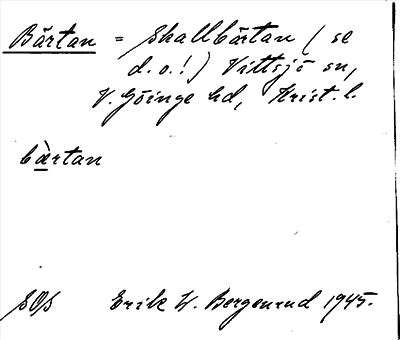 Bärtan = Skallbärtan (se
d.o.!) Vittsjö sn,
V. Göinge hd, Krist. l.
bæ̀rtan
SOS Erik W. Bergenrud 1945.